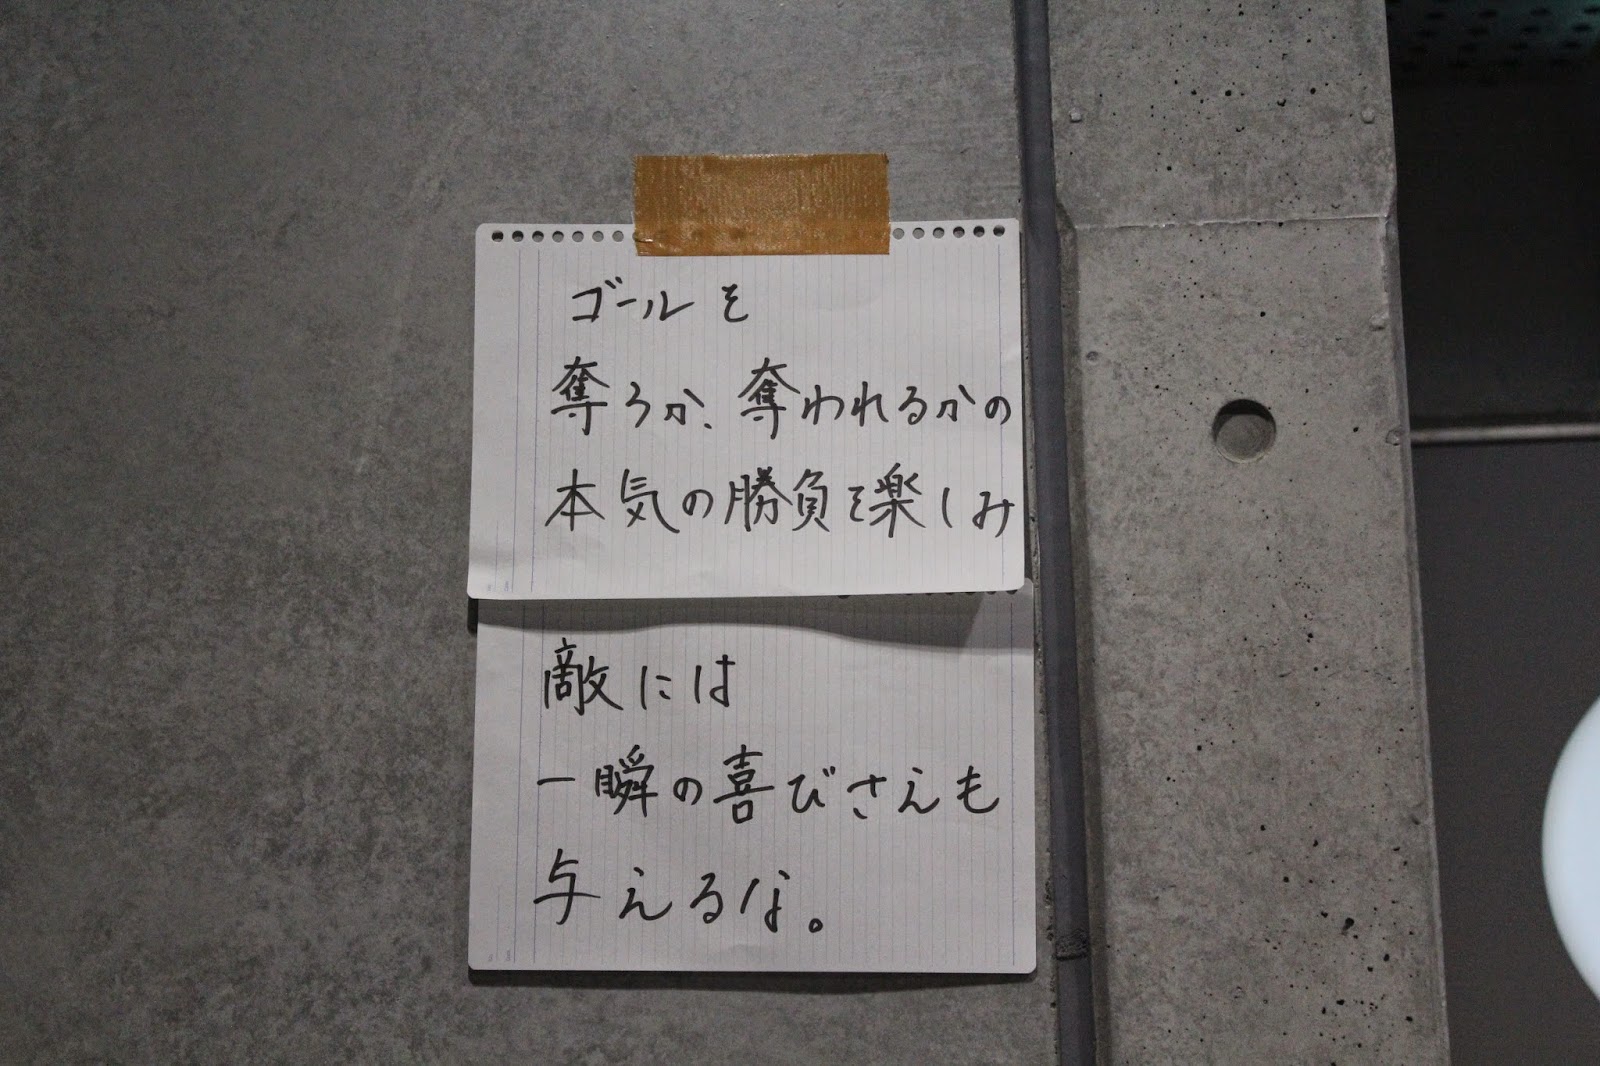 ゴールを
奪うか、奪われるかの
本気の勝負を楽しみ
敵には
一瞬の喜びさえも
与えるな。